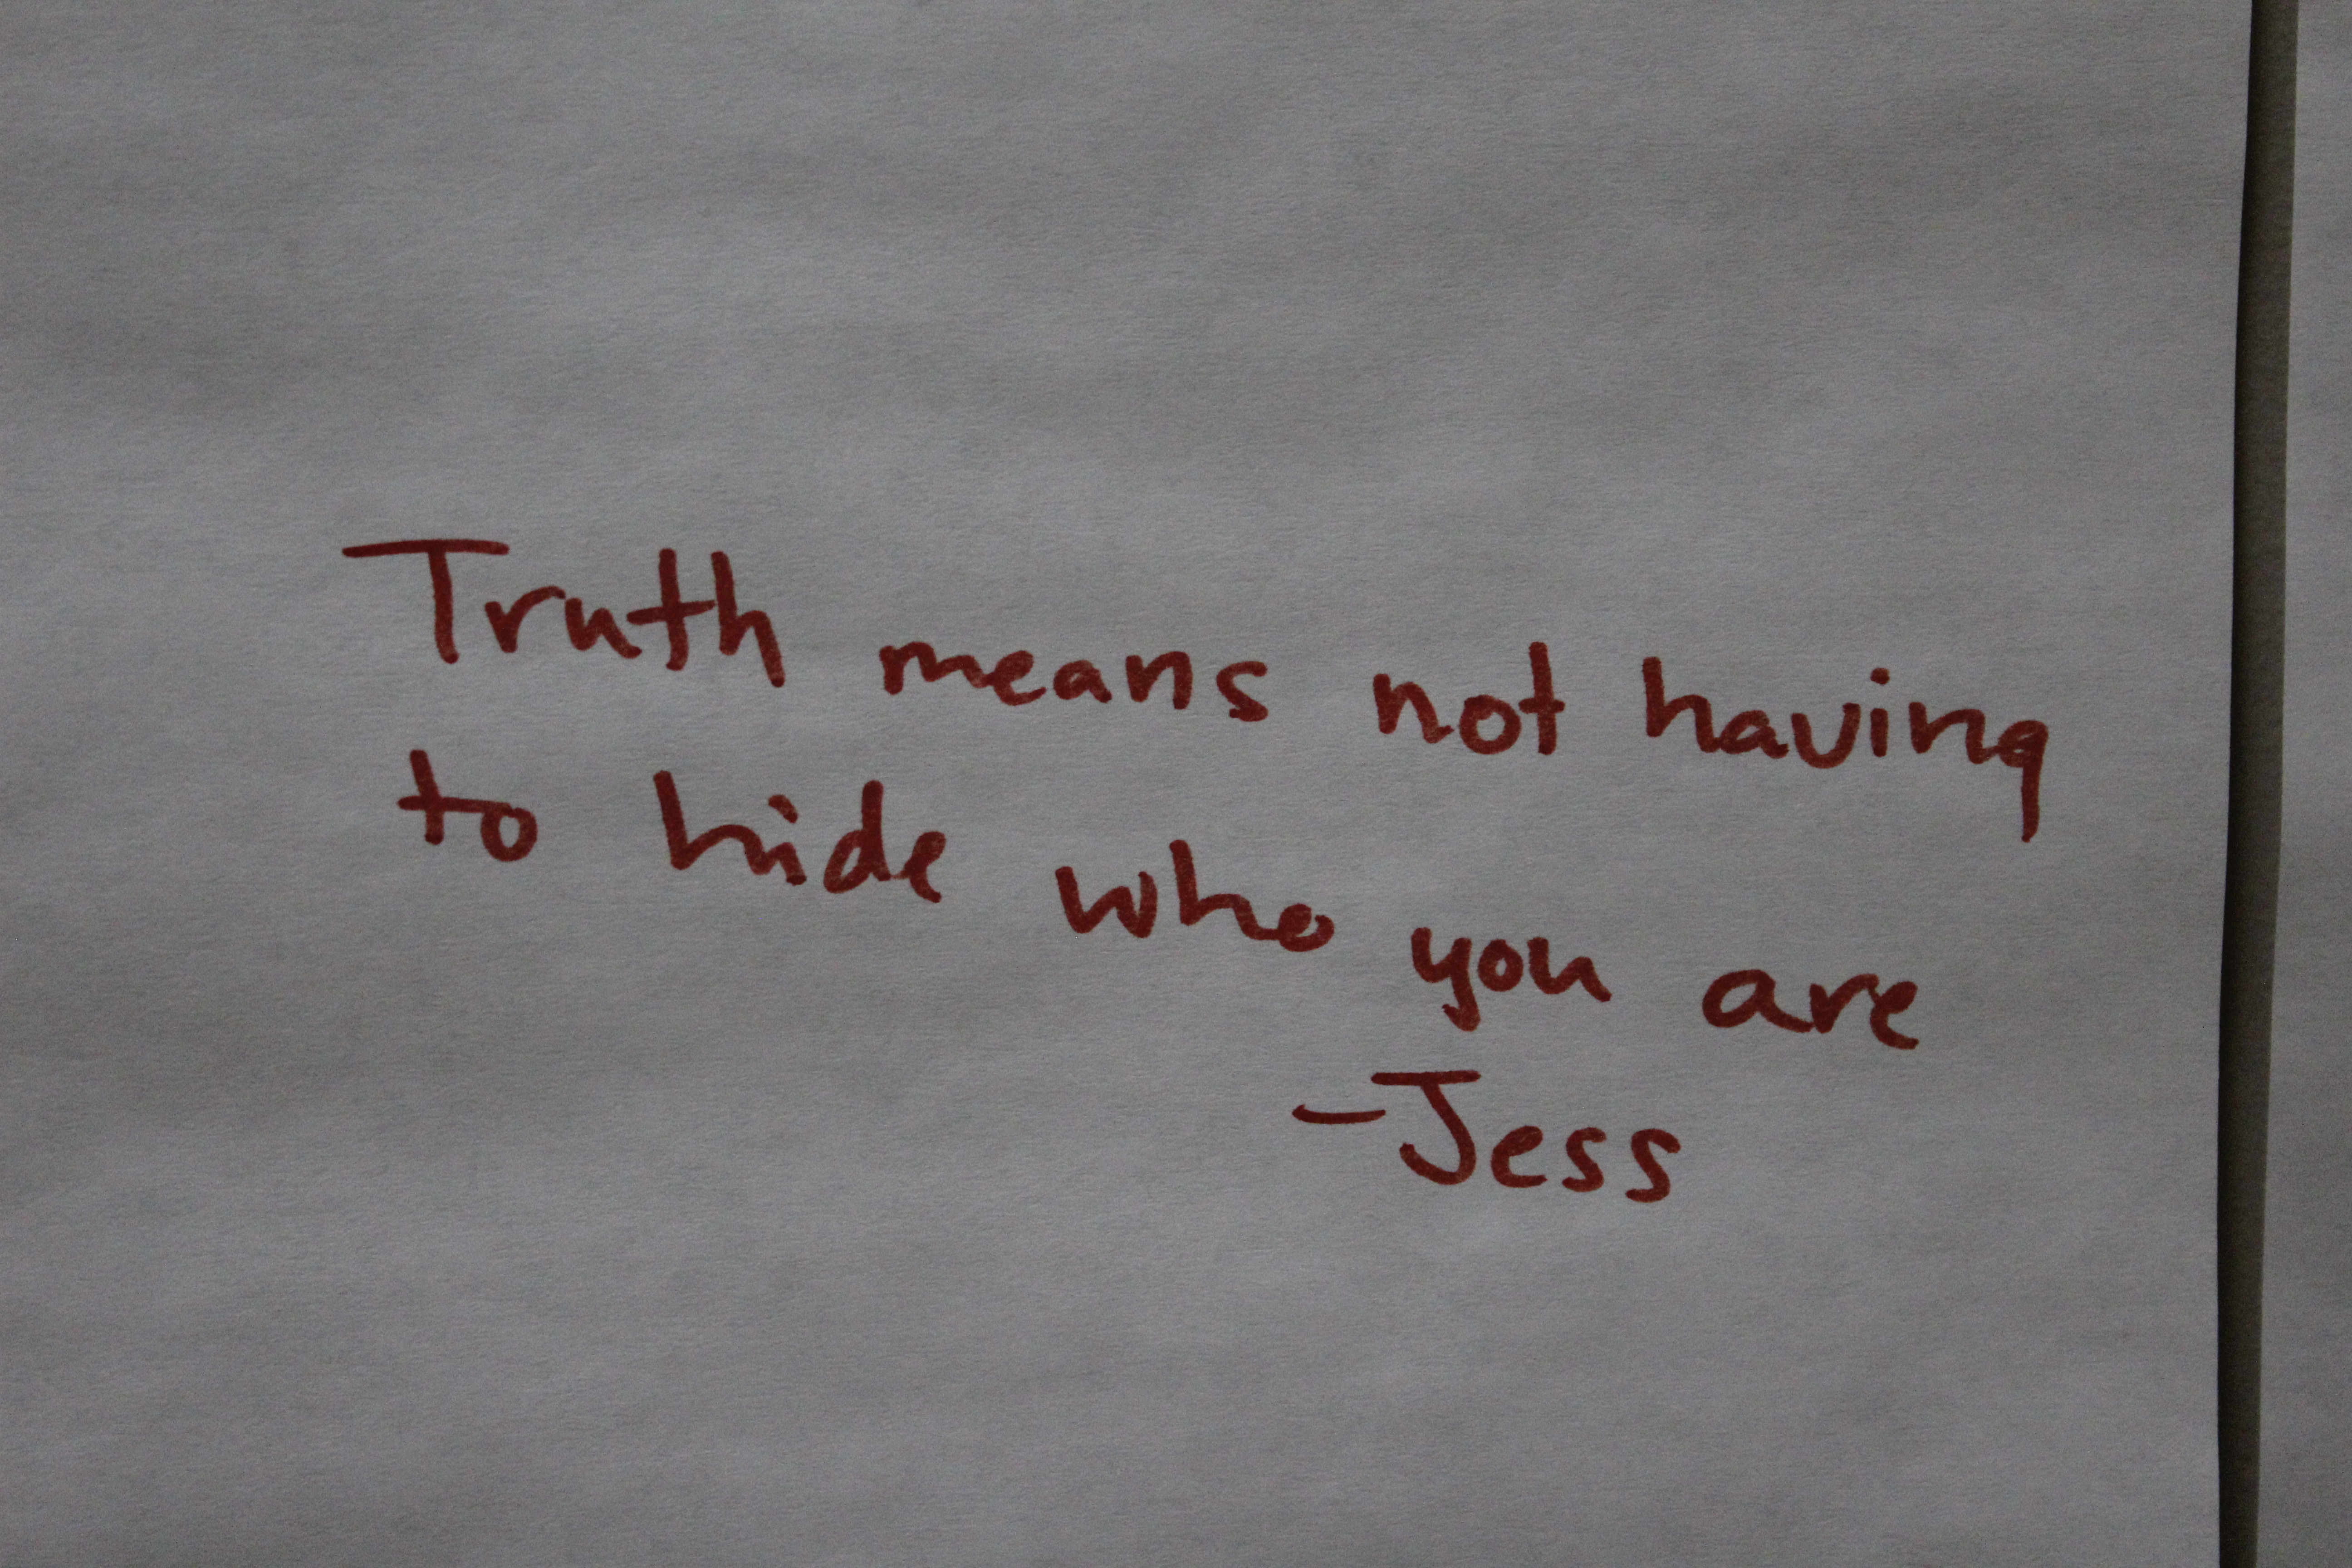 Truth means not having
to hide who you are
-Jess